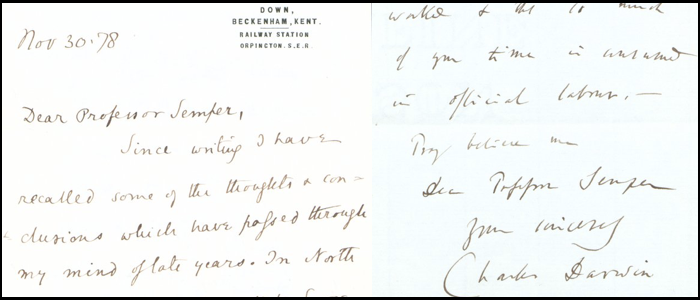 DOWN,
BECKENHAM, KENT.
RAILWAY STATION
ORPINGTON. S.E.R.
Nov 30. 78
Dear Professor Semper,
Since writing I have
recalled some of the thoughts & con=
clusions which have passed through
my mind of late years. In North
worked & tho so much
of your time is consumed
in official labour. —
Pray believe me
Dear Professor Semper
Yours sincerely
Charles Darwin